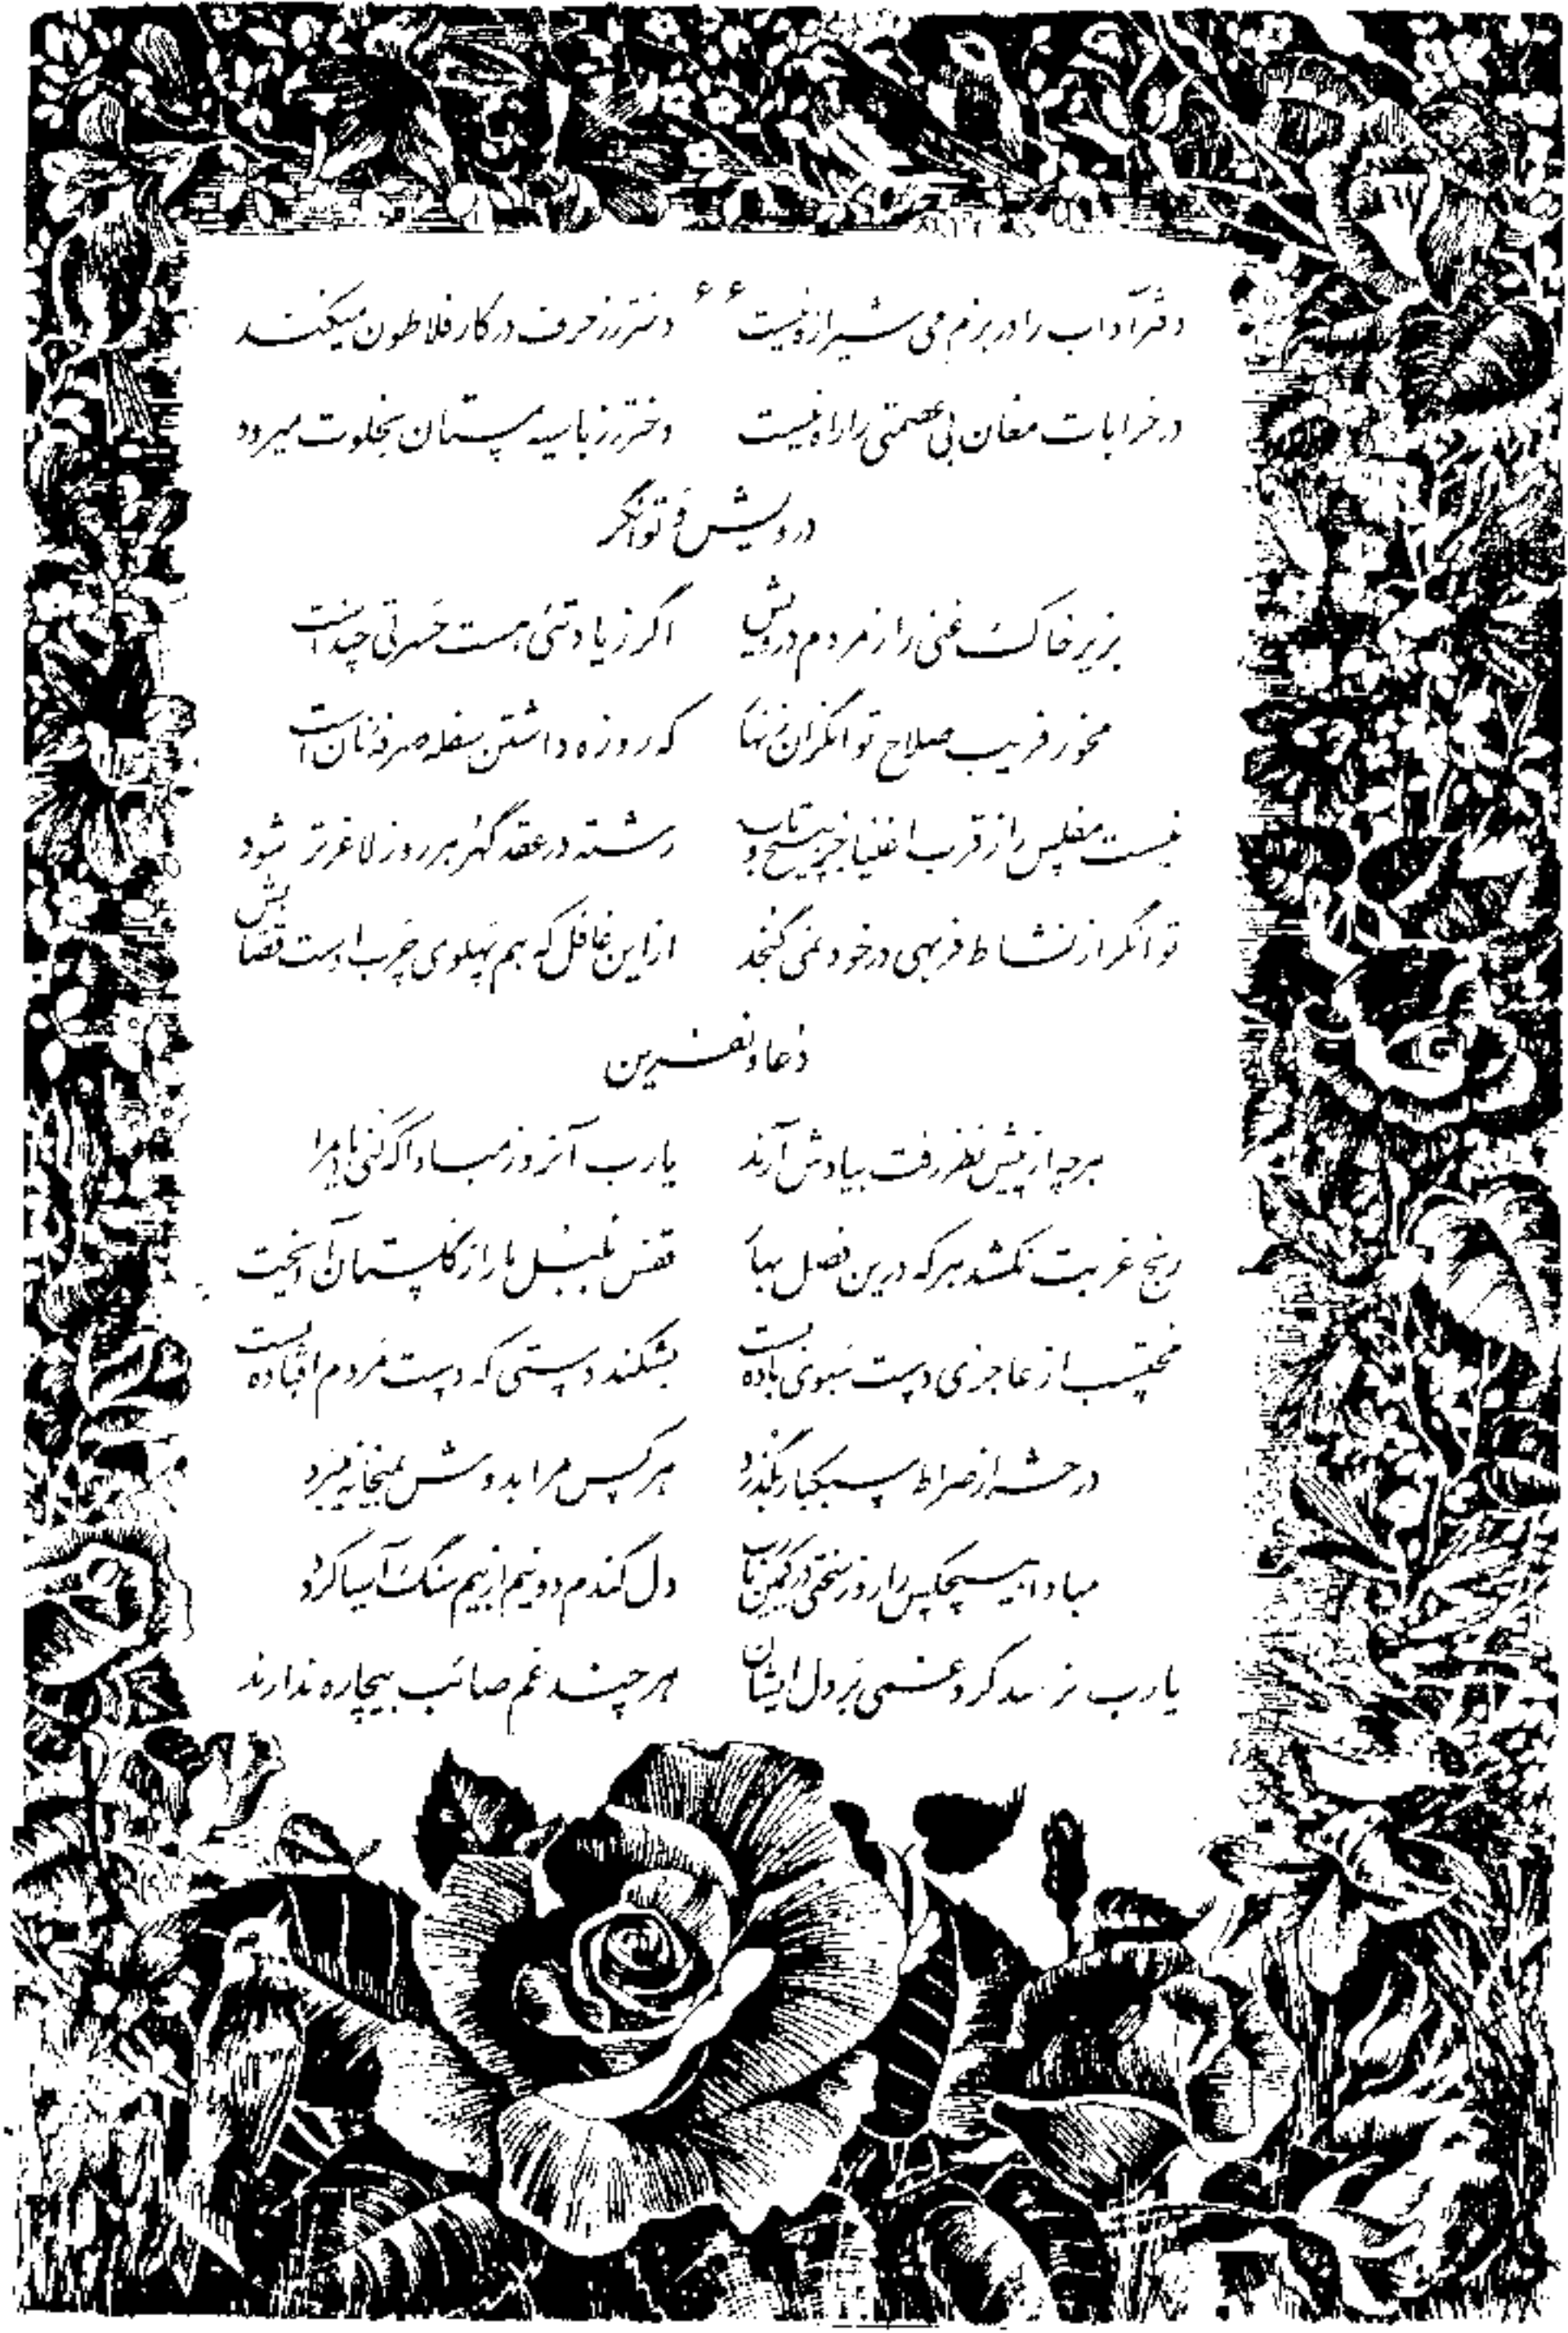 ۶۶
دفتر آداب را در بزم می شیرازه نیست دختر رز حرف در کار فلاطون میکند
در خرابات مغان بی عصمتی را راه نیست دختر رز با سیه مستان بخلوت میرود
درویش و توانگر
بزیر خاک غنی را ز مردم درویش اگر زیادتئی هست حسرتی چند است
مخور فریب صلاح توانگران زنهار که روزه داشتن سفله صرفهٔ نان است
نیست مفلس را ز قرب اغنیا جز پیچ و تاب رشته در عقد گهر هر روز لاغرتر شود
توانگر از نشاط فربهی در خود نمی گنجد ازاین غافل که هم پهلوی چرب است قصابش
دعا و نفرین
هرچه از پیش نظر رفت بیادش آرند یارب آنروز مبادا که کنی یاد مرا
رنج غربت نکشد هرکه درین فصل بهار قفس بلبل ما را ز گلستان آویخت
محتسب از عاجزی دست سبوی باده بست بشکند دستی که دست مردم افتاده بست
در حشر از صراط سبکبار بگذرد هر کس مرا بدوش بمیخانه میبرد
مبادا هیچکس را روز سختی در کمین یارب دل گندم دو نیم از بیم سنگ آسیا گردد
یارب نرسد گرد غمی بر دل ایشان هرچند غم صائب بیچاره ندارند